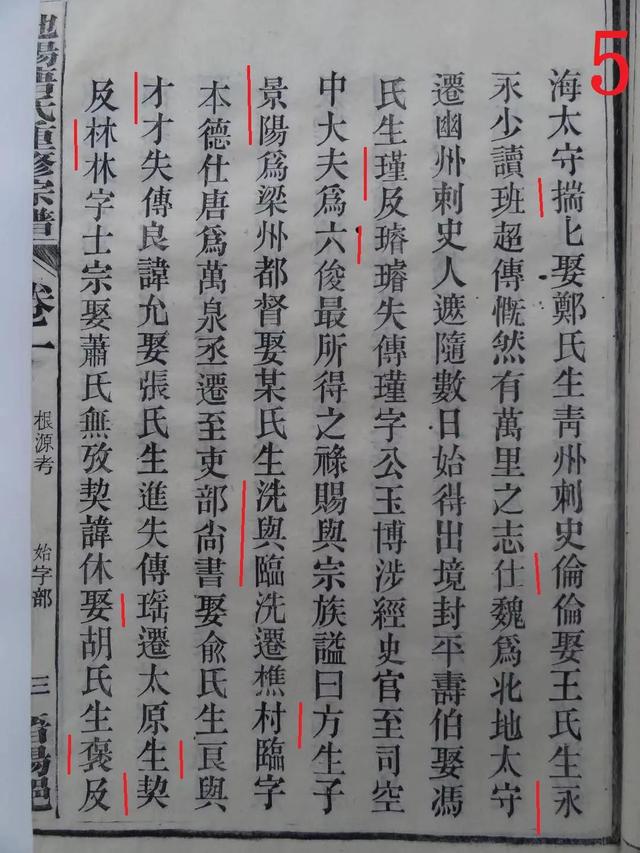 5
海太守揣匕娶鄭氏生靑州刺史倫倫娶王氏生永
永少讀班超傳慨然有萬里之志仕魏爲北地太守
遷幽州刺史人遮隨數日始得出境封平壽伯娶馮
氏生瑾及璿璿失傳瑾字公玉博涉經史官至司空
中大夫爲六俊最所得之祿賜與宗族謚曰方生子
景陽爲梁州都督娶某氏生洗與臨洗遷樵村臨字
本德仕唐爲萬泉丞遷至吏部尙書娶兪氏生良與
才才失傳良諱允娶張氏生進失傳瑤遷太原生契
及林林字士宗娶蕭氏無攷契諱休娶胡氏生褒及
氏重修宗譜 卷一 根源考 始字部 三